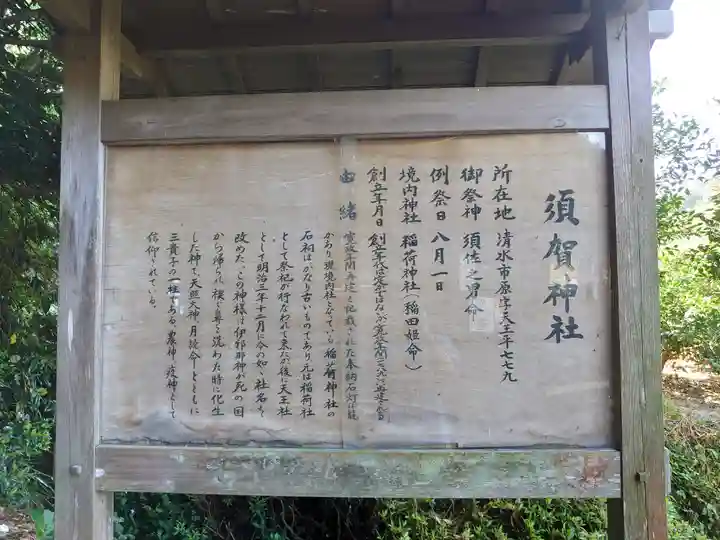 須賀神社
所在地 清水市原字天王平七七九
御祭神 須佐之男命
例祭日 八月一日
境内神社 稲荷神社(稲田姫命)
創立年月日 創立年代は定かではないが寛政年間
由緒 寛政年間再建と記載された奉納石灯籠
があり現境内社となっている稲荷神社の
石祠はかなり古いものであり元は稲荷社
として祭祀が行なわれて来たが後に天王社
として明治三年十二月に今の如く社名を
改めた、この神様は伊邪那神が死の国
から帰られ、禊ぎ鼻を洗わた時に化生
した神で、天照大神、月読命とともに
三貴子の一柱である、農神、疫神として
信仰されている。